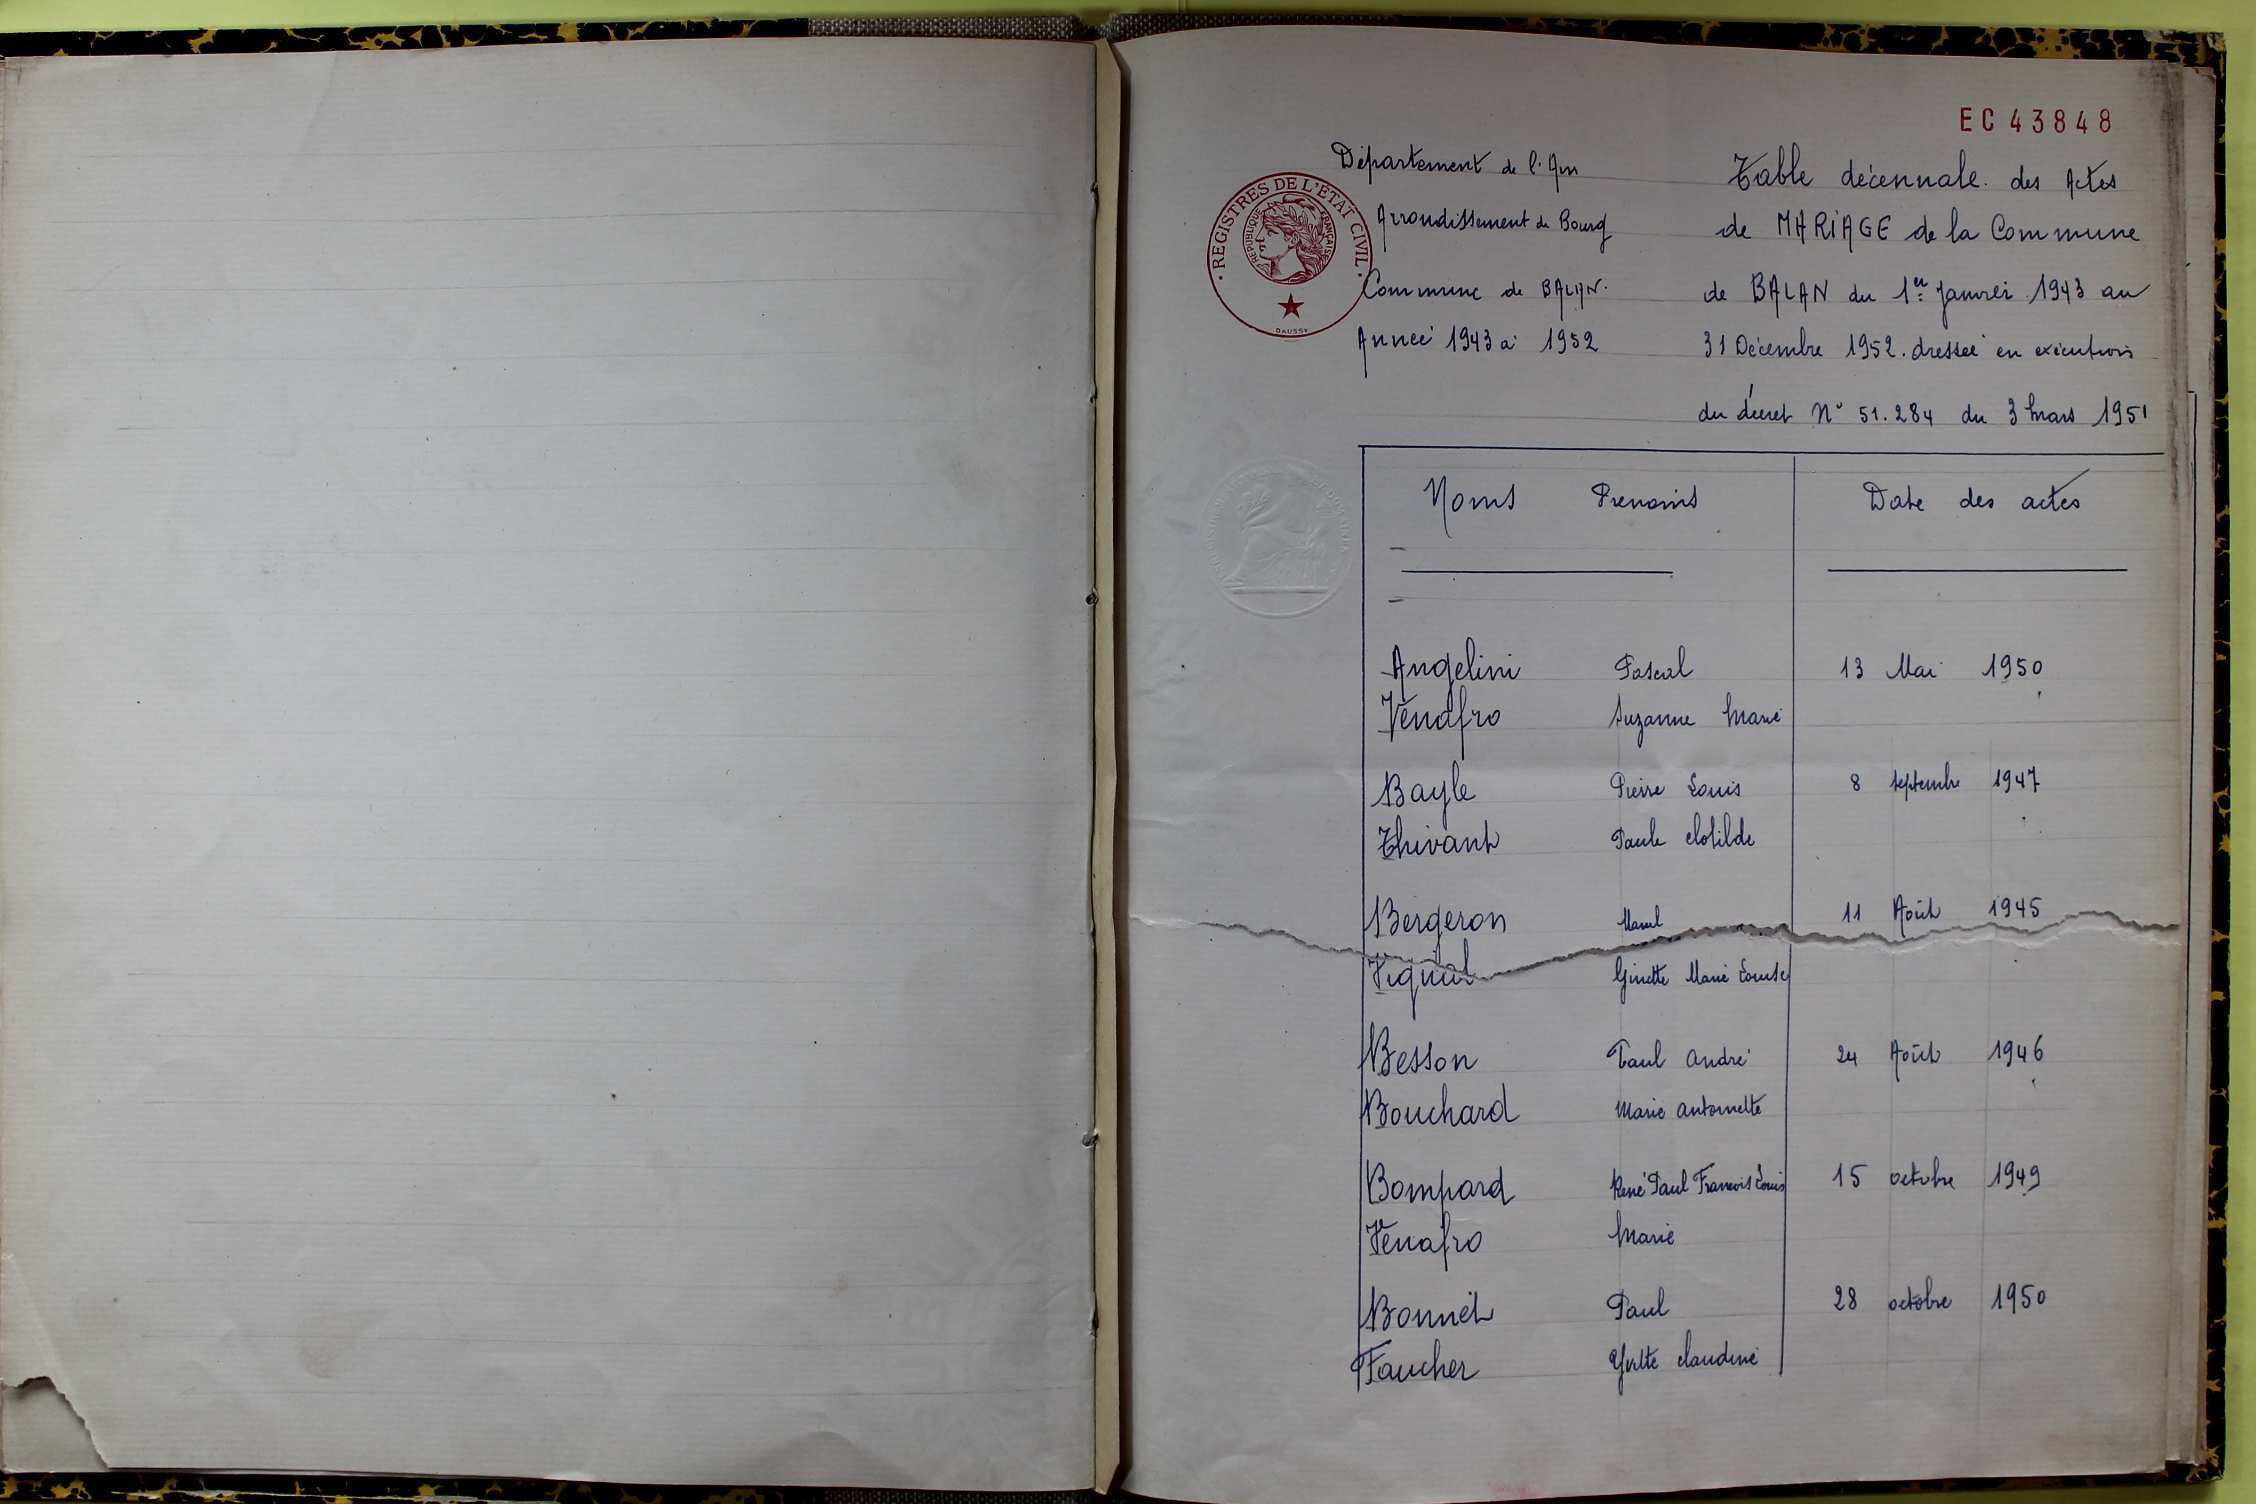 EC 43848
Département de l'Ain
Arrondissement de Bourg
Commune de BALAN.
Année 1943 à 1952
REGISTRES DE L'ETAT CIVIL
REPUBLIQUE FRANÇAISE
DAUSSY
Table décennale des Actes
de MARIAGE de la Commune
de BALAN du 1er Janvier 1943 au
31 Décembre 1952. dressée en exécution
du décret N° 51.284 du 3 Mars 1951
Noms Prenoms Date des actes
Angelini Pascal 13 Mai 1950
Venafro Suzanne Marie
Bayle Pierre Louis 8 septembre 1947
Thivant Paule Clotilde
Bergeron Marcel 11 Août 1945
Ginette Marie Louise
Besson Paul André 24 Août 1946
Bouchard Marie Antoinette
Bompard René Paul François Louis 15 octobre 1949
Venafro Marie
Bonnet Paul 28 octobre 1950
Faucher Yvette Claudine